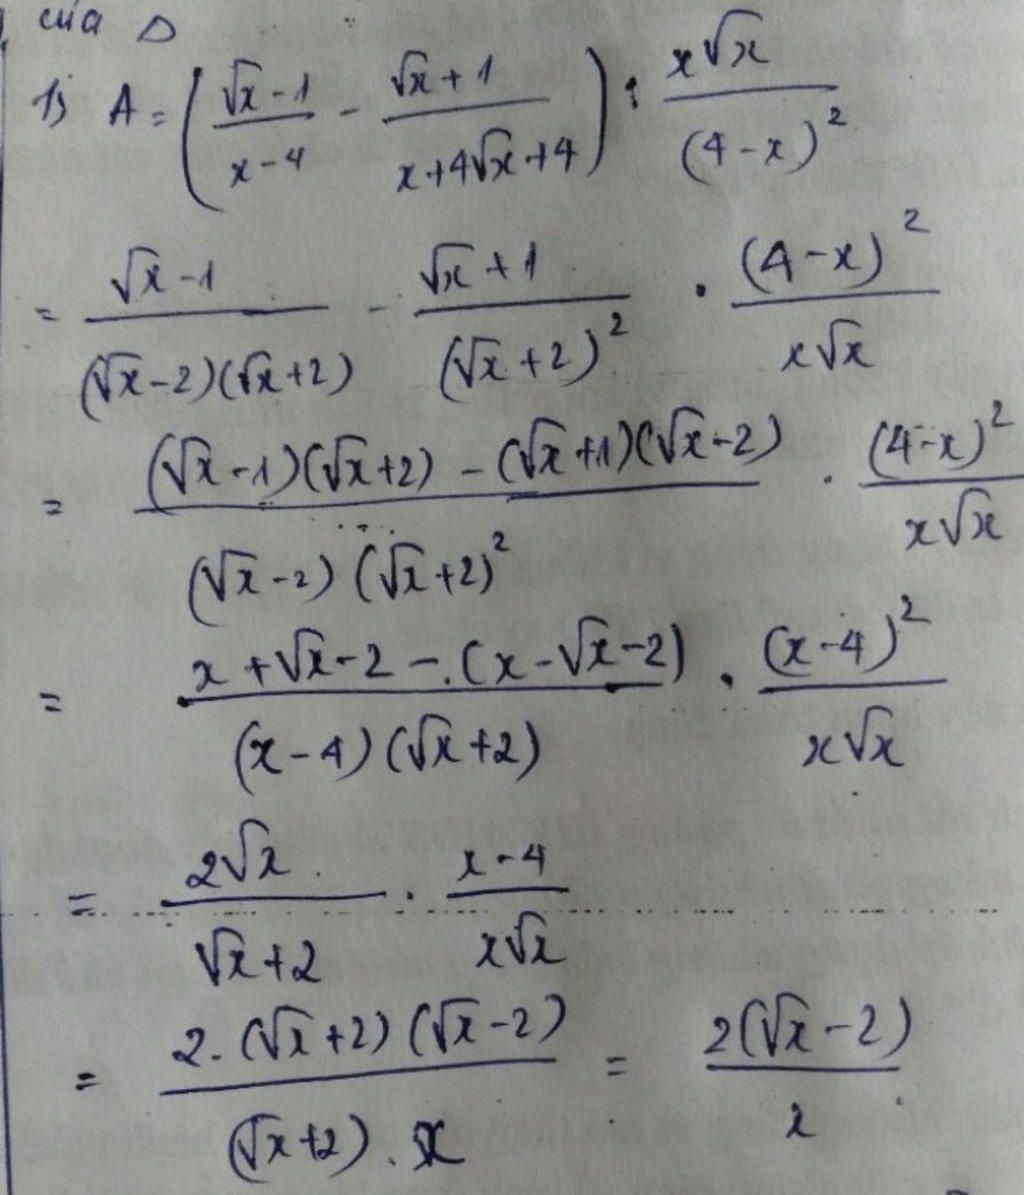 của Δ
1) A = ( (√x - 1)/(x - 4) - (√x + 1)/(x + 4√x + 4) ) : (x√x)/(4 - x)²
= (√x - 1)/((√x - 2)(√x + 2)) - (√x + 1)/(√x + 2)² · (4 - x)²/(x√x)
= ((√x - 1)(√x + 2) - (√x + 1)(√x - 2))/((√x - 2)(√x + 2)²) · (4 - x)²/(x√x)
= (x + √x - 2 - (x - √x - 2))/((x - 4)(√x + 2)) · (x - 4)²/(x√x)
= (2√x)/(√x + 2) · (x - 4)/(x√x)
= (2·(√x + 2)(√x - 2))/((√x + 2).x) = (2(√x - 2))/x